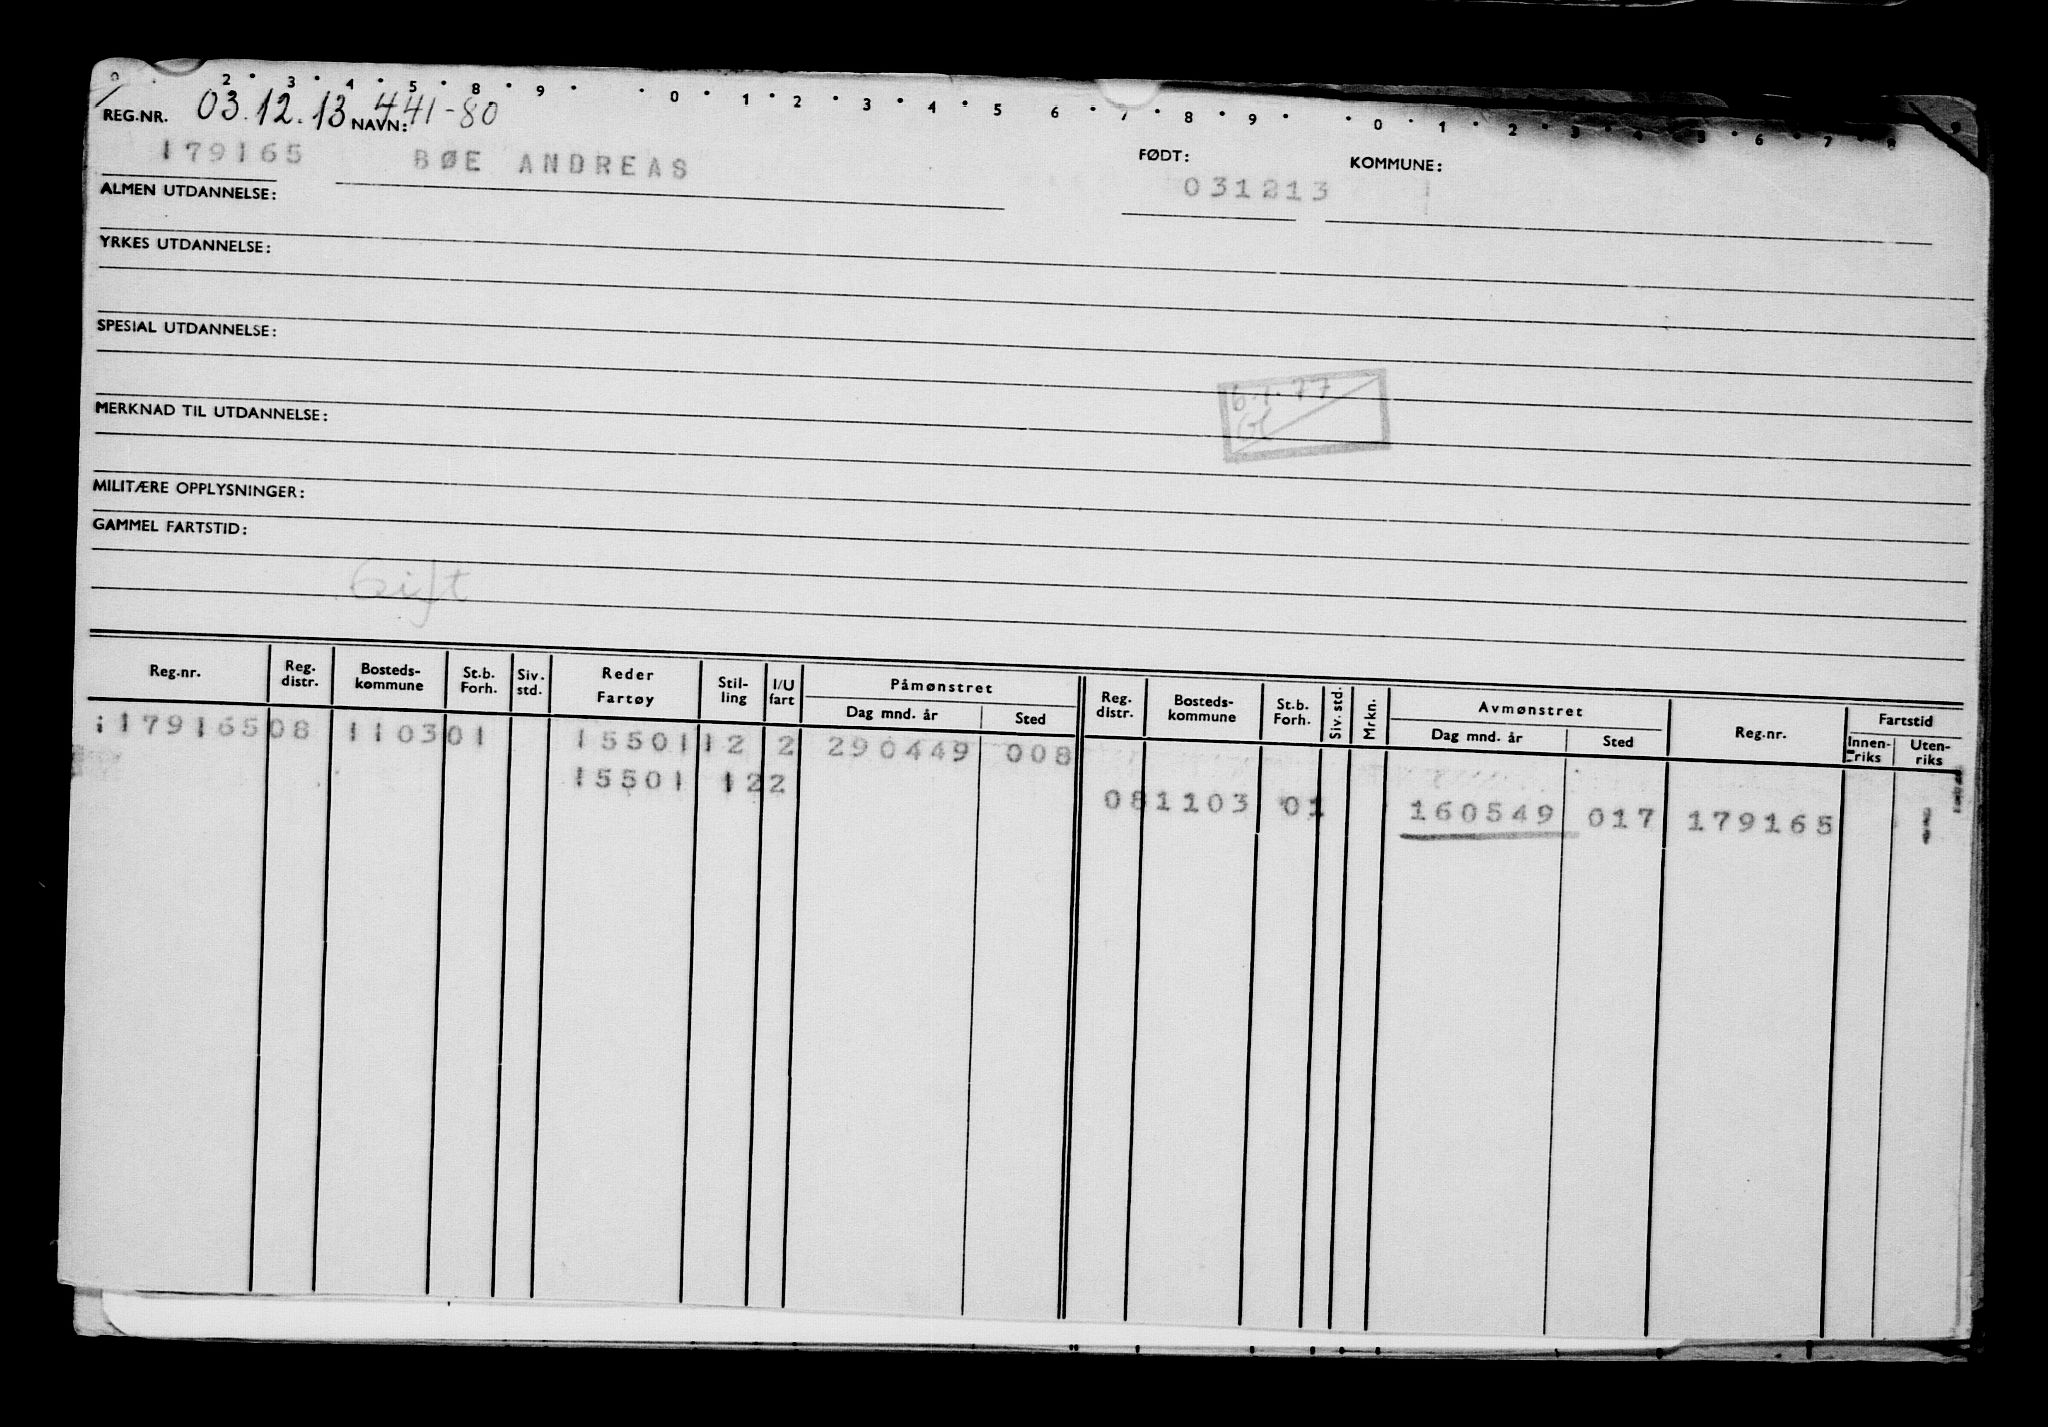 0 2 3 4 5 8 9 0 1 2 3 4 5 6 7 8 9 0 1 2 3 4 5 6 7 8 9
REG.NR. 03.12.13 441-80
NAVN:
179165 BØE ANDREAS
FØDT: KOMMUNE:
031213 1
ALMEN UTDANNELSE:
YRKES UTDANNELSE:
SPESIAL UTDANNELSE:
6.1.77
MERKNAD TIL UTDANNELSE:
MILITÆRE OPPLYSNINGER:
GAMMEL FARTSTID:
Gift
Reg.nr. Reg. distr. Bosteds-kommune St.b. Forh. Siv. std. Reder Fartøy Stil-ling I/U fart Påmønstret Dag mnd. år Sted Reg. distr. Bosteds-kommune St.b. Forh. Siv. std. Mrkn. Avmønstret Dag mnd. år Sted Reg.nr. Fartstid Innen-riks Uten-riks
179165 08 1103 01 15501 12 2 290449 008
15501 12 2
08 1103 01 160549 017 179165